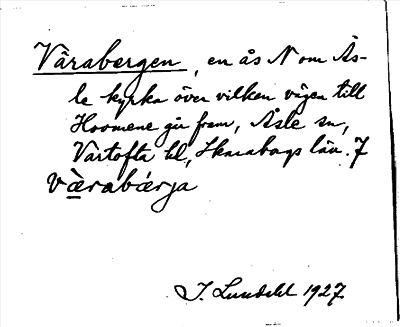 Vårabergen, en ås N om Ås-
le kyrka över vilken vägen till
går fram, Åsle sn,
Vartofta hd, Skarabogs län. 7
värabärja
J. Lundahl 1927